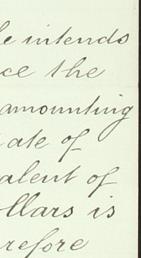 e intends
ce the
amounting
ate of
alent of
ollars is
refore